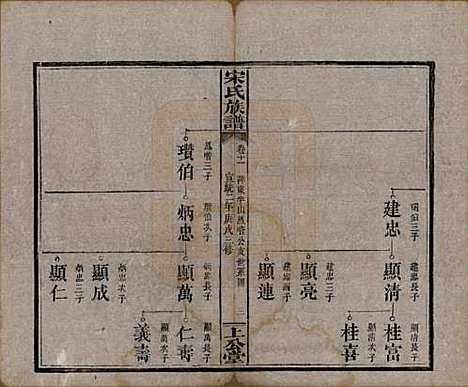 建忠
昭伯三子
顯清
建忠長子
顯亮
建忠三子
顯連
桂富
顯清長子
桂喜
顯清次子
宋氏族譜
卷十一
宣統二年庚戌三修
上公堂
瓚伯
三子
炳忠
瓚伯次子
顯萬
炳忠長子
顯成
炳忠次子
顯仁
炳忠三子
仁壽
顯萬長子
義壽
顯萬次子